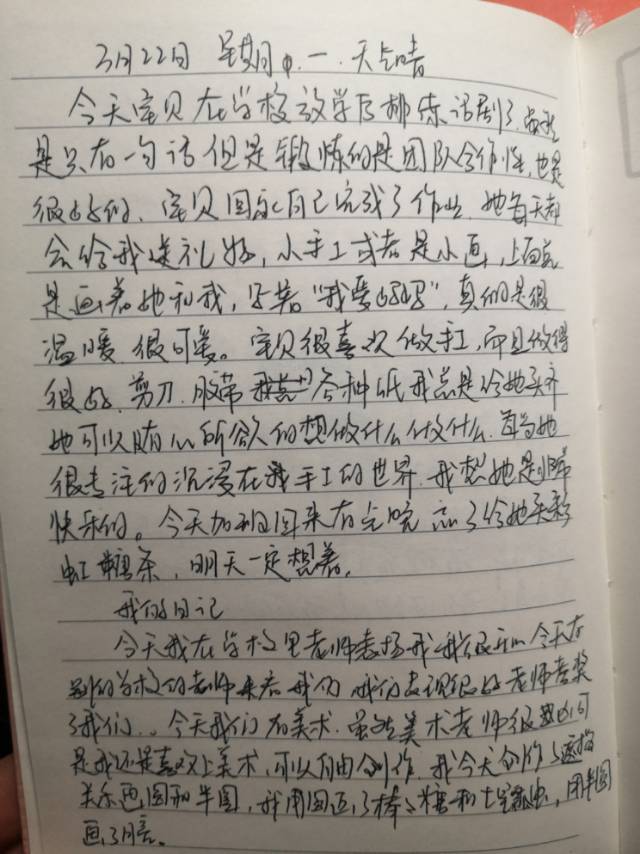 3月22日 星期一. 天气晴
今天宝贝在学校放学后排练话剧了.虽然
是只有一句话但是锻炼的是团队合作性,也是
很好的、宝贝回家自己完成了作业.她每天都
会给我送礼物,小手工或者是小画,上面总
是画着她和我,写着“我爱妈妈”,真的是很
温暖 很可爱。宝贝很喜欢做手工,而且做得
很好、剪刀、胶带 各种纸我总是给她买齐
她可以随心所欲的想做什么做什么.每当她
很专注的沉浸在手工的世界.我想她是非常
快乐的。今天加班回来有点晚 忘了给她买彩
虹糖条,明天一定想着.
我的日记
今天我在学校里老师表扬我我很开心今天有
别的学校的老师来看我们 我们表现很好老师表奖
了我们.. 今天我们有美术.虽然美术老师很凶可
是我还是喜欢上美术,可以自由创作.我今天创作
关于画圆和半圆,我用圆画了棒棒糖和七星瓢虫,用半圆
画了月亮。